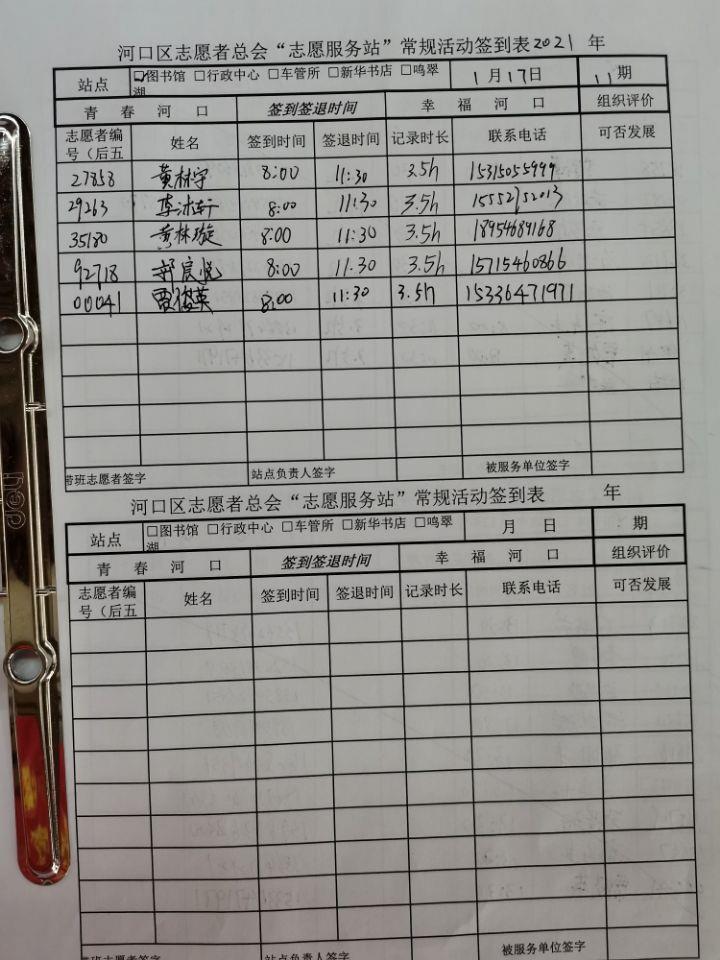 河口区志愿者总会“志愿服务站”常规活动签到表2021 年
站点 ☑图书馆 □行政中心 □车管所 □新华书店 □鸣翠湖 1月17日 11期
青 春 河 口 签到签退时间 幸 福 河 口 组织评价
志愿者编号（后五 姓名 签到时间 签退时间 记录时长 联系电话 可否发展
27858 黄林宇 8:00 11:30 3.5h 15315055999
29263 李冰轩 8:00 11:30 3.5h 15552752013
35180 黄林璇 8:00 11:30 3.5h 18954689168
92718 晨悦 8:00 11.30 3.5h 15715460866
00041 雷俊英 8:00 11:30 3.5h 15336471971
带班志愿者签字 站点负责人签字 被服务单位签字
河口区志愿者总会“志愿服务站”常规活动签到表 年
站点 □图书馆 □行政中心 □车管所 □新华书店 □鸣翠湖 月 日 期
青 春 河 口 签到签退时间 幸 福 河 口 组织评价
志愿者编号（后五 姓名 签到时间 签退时间 记录时长 联系电话 可否发展
带班志愿者签字 站点负责人签字 被服务单位签字
deli